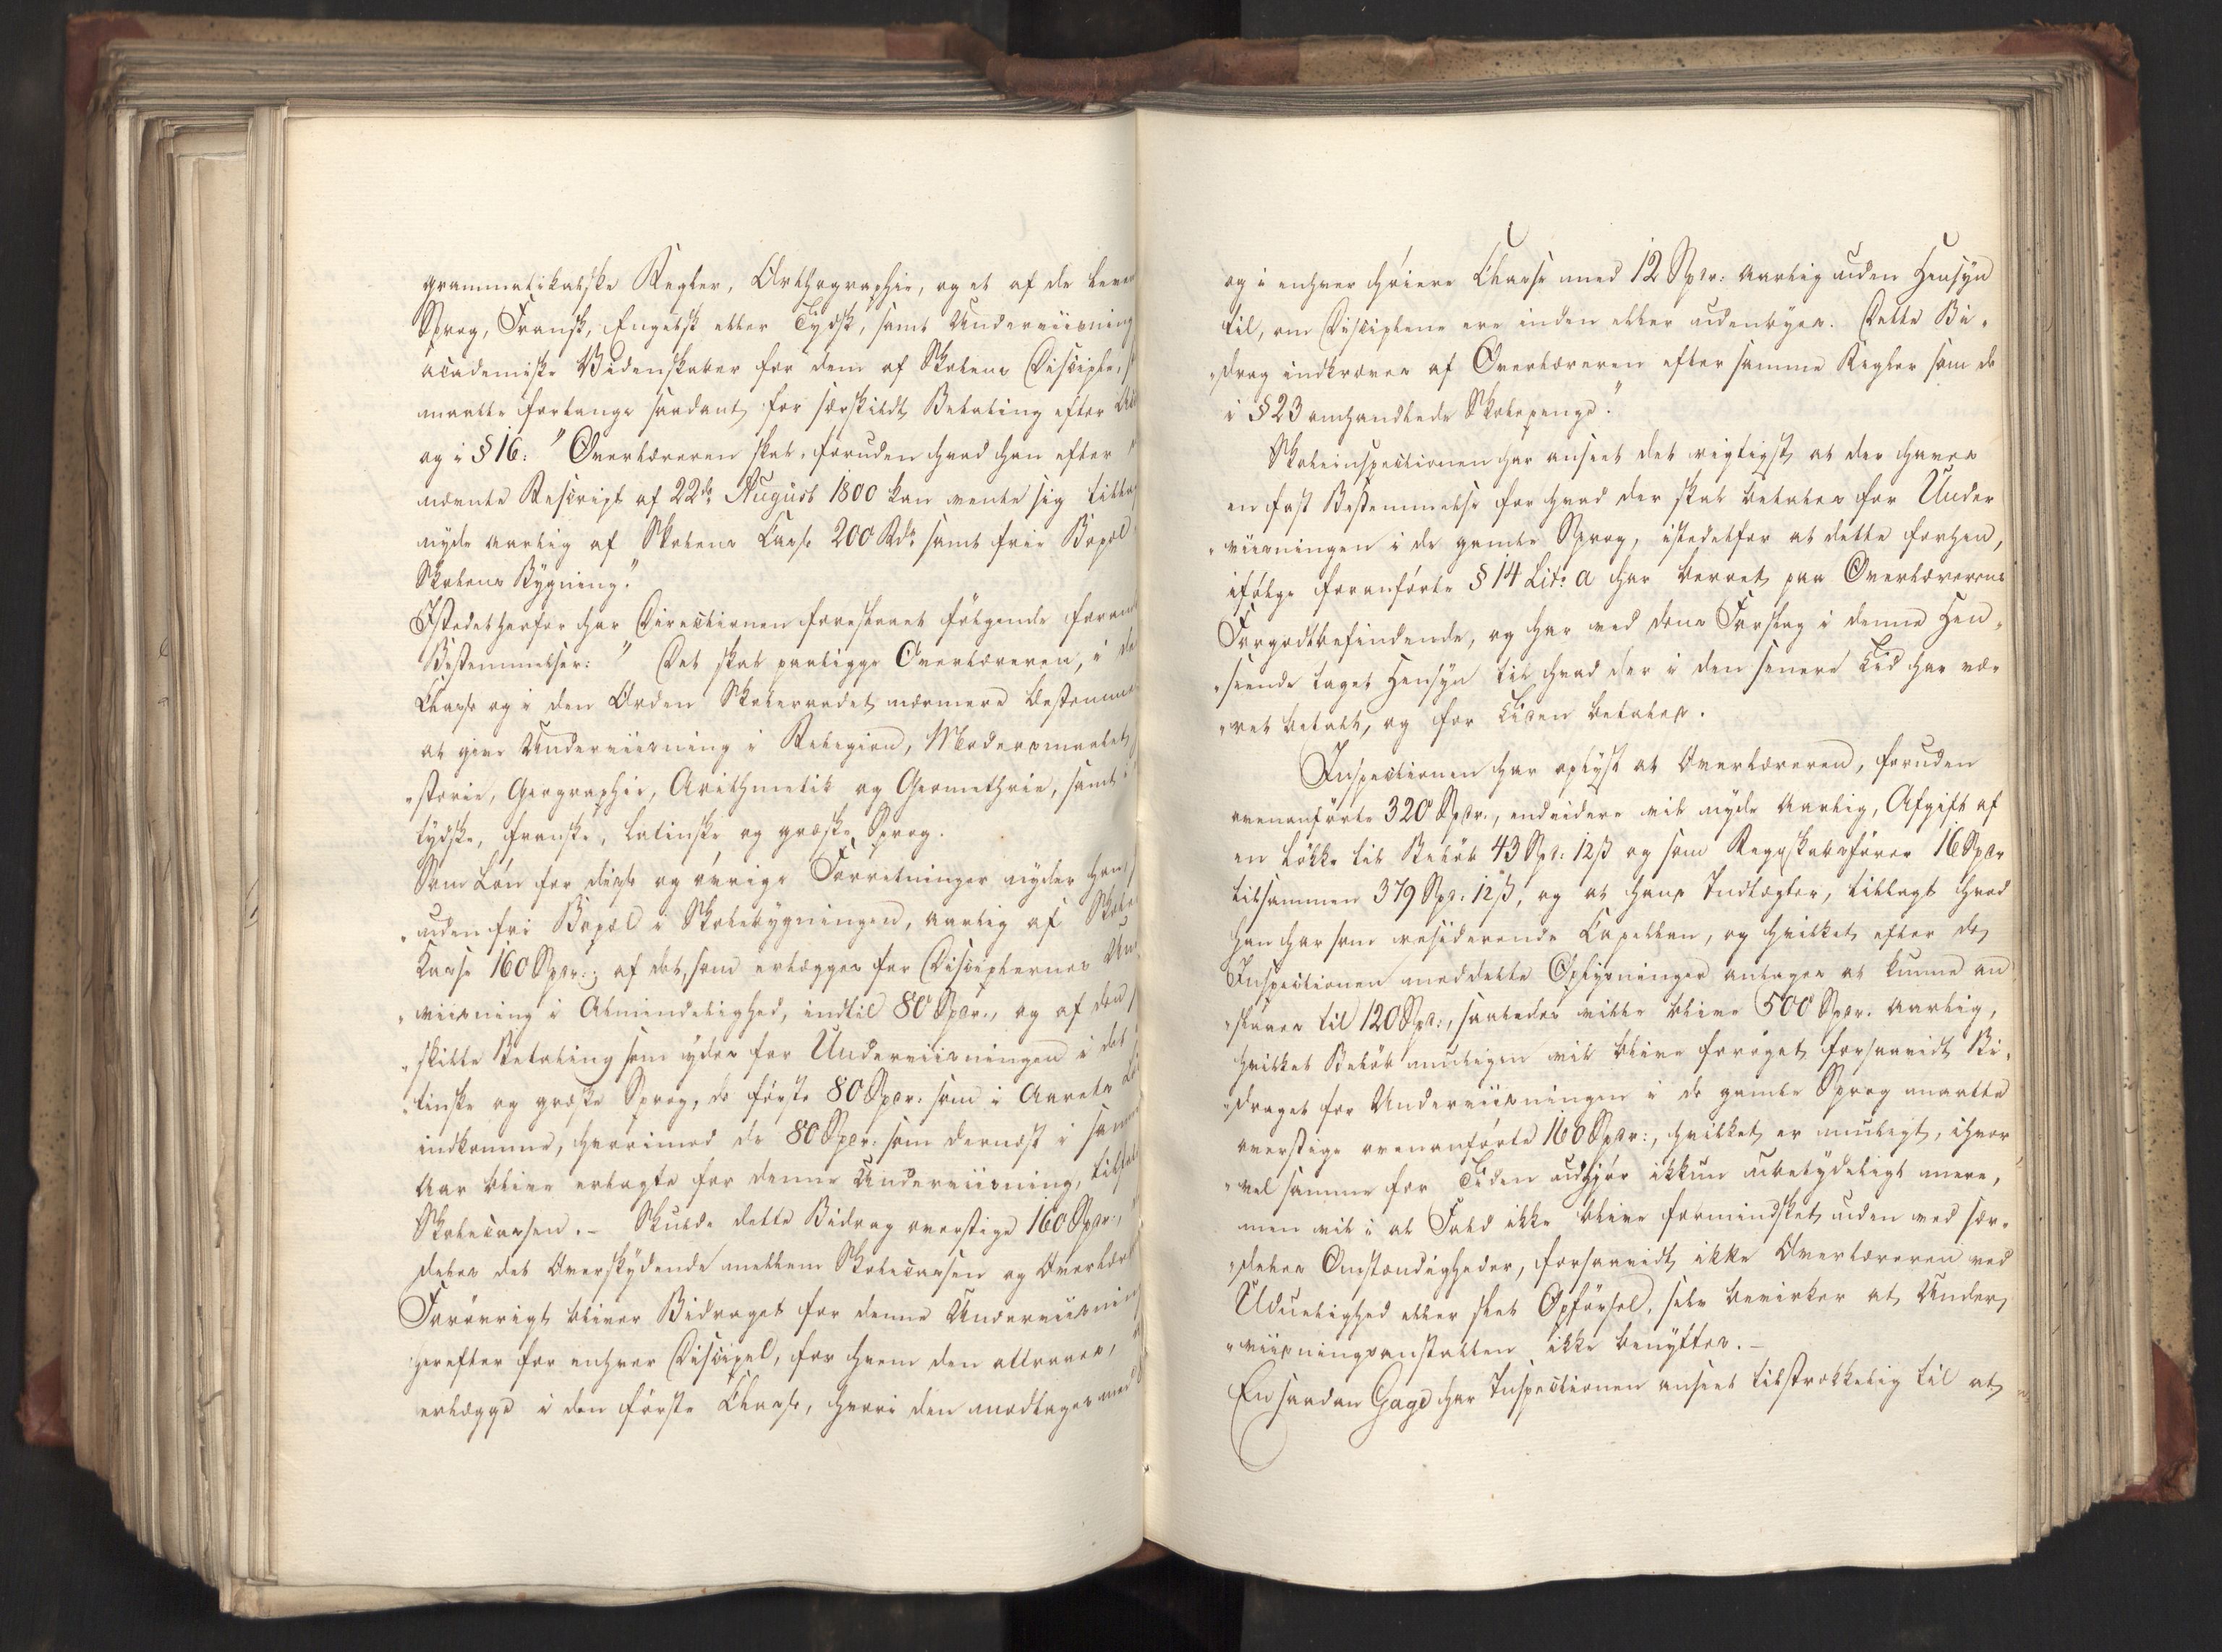 grammatikalske Regler, Orthographie, og et af de leven
Sprog, Fransk, Engelsk eller Tydsk, samt Underviisning
academiske Videnskaber for dem af Skolens Disciple, s
maatte forlange saadant, for særskildt Betaling efter
og i § 16: "Overlæreren skal, foruden hvad han efter
nævnte Rescript af 22de August 1800 kan vente sig tillag
nyde aarlig af Skolens Casse 200 Rdr samt frie Bopæl
Skolens Bygning."
Istedetherfor har Directionen foreslaaet følgende foran
Bestemmelser: " Det skal paaligge Overlæreren, i de
Classe og i den Orden Skoleraadet nærmere bestemme
at give Underviisning i Religion, Modersmaalet,
„storie, Geographie, Arithmetik og Geomethrie, samt i
tydske, franske, latinske og græske Sprog.
Som Løn for disse og øvrige Forretninger nyder han,
„uden fri Bopæl i Skolebygningen, aarlig af Skole
Kasse 160 Spdr.; af det, som erlægges for Disciplernes Un
„viisning i Almindelighed, indtil 80 Spdr., og af den
„skilte Betaling som ydes for Underviisningen i det
„tinske og græske Sprog, de første 80 Spdr. som i Aarets
indkomme, hvorimod de 80 Spdr. som dernæst i samme
Aar blive erlagte for denne Underviisning, tilfal
Skolecassen. - Skulde dette Bidrag overstige 160 Spdr.,
deles det Overskydende mellem Skolecassen og Overlær
Forøvrigt bliver Bidraget for denne Underviisning
herefter for enhver Discipel, for hvem den attraaes,
erlægge i den første Classe, hvori den modtages med
og i enhver høiere Classe med 12 Spdr: aarlig uden Hensyn
til, om Disciplene ere inden eller udenbyes. Dette Bi„
„drag indkræves af Overlæreren efter samme Regler som de
i § 23 omhandlede Skolepenge."
Skoleinspectionen har anseet det rigtigst, at der haves
en fast Bestemmelse for hvad der skal betales for Under
„viisningen i de gamle Sprog, istedetfor at dette forhen,
ifølge foranførte § 14 Litr. a har beroet paa Overlærerens
Forgodtbefindende, og har ved dens Forslag i denne Hen„
„seende taget Hensyn til hvad der i den senere Tid har væ„
„ret betalt, og for Tiden betales.
Inspectionen har oplyst at Overlæreren, foruden
ovenanførte 320 Spdr., endvidere vil nyde aarlig, Afgift af
en Løkke til Beløb 43 Spd: 12 ß og som Regnskabsfører 16 Spdr
tilsammen 379 Spd: 12 ß, og at hans Indtægter, tillagt hvad
han har som residerende Capellan, og hvilket efter de,
Inspectionen meddelte Oplysninger antages at kunne an
„slaaes til 120 Spd:, saaledes ville blive 500 Spdr. aarlig,
hvilket Beløb muligen vil blive forøget, forsaavidt Bi„
„draget for Underviisningen i de gamle Sprog maatte
overstige ovenanførte 160 Spdr:, hvilket er muligt, ihvor
„vel samme for Tiden udgjør ikkun ubetydeligt mere,
men vil i al Fald ikke blive formindsket, uden ved sær„
„deles Omstændigheder, forsaavidt ikke Overlæreren ved
Uduelighed eller slet Opførsel, selv bevirker at Under„
„viisningsanstalten ikke benyttes. -
En saadan Gage har Inspectionen anseet tilstrækkelig til at,